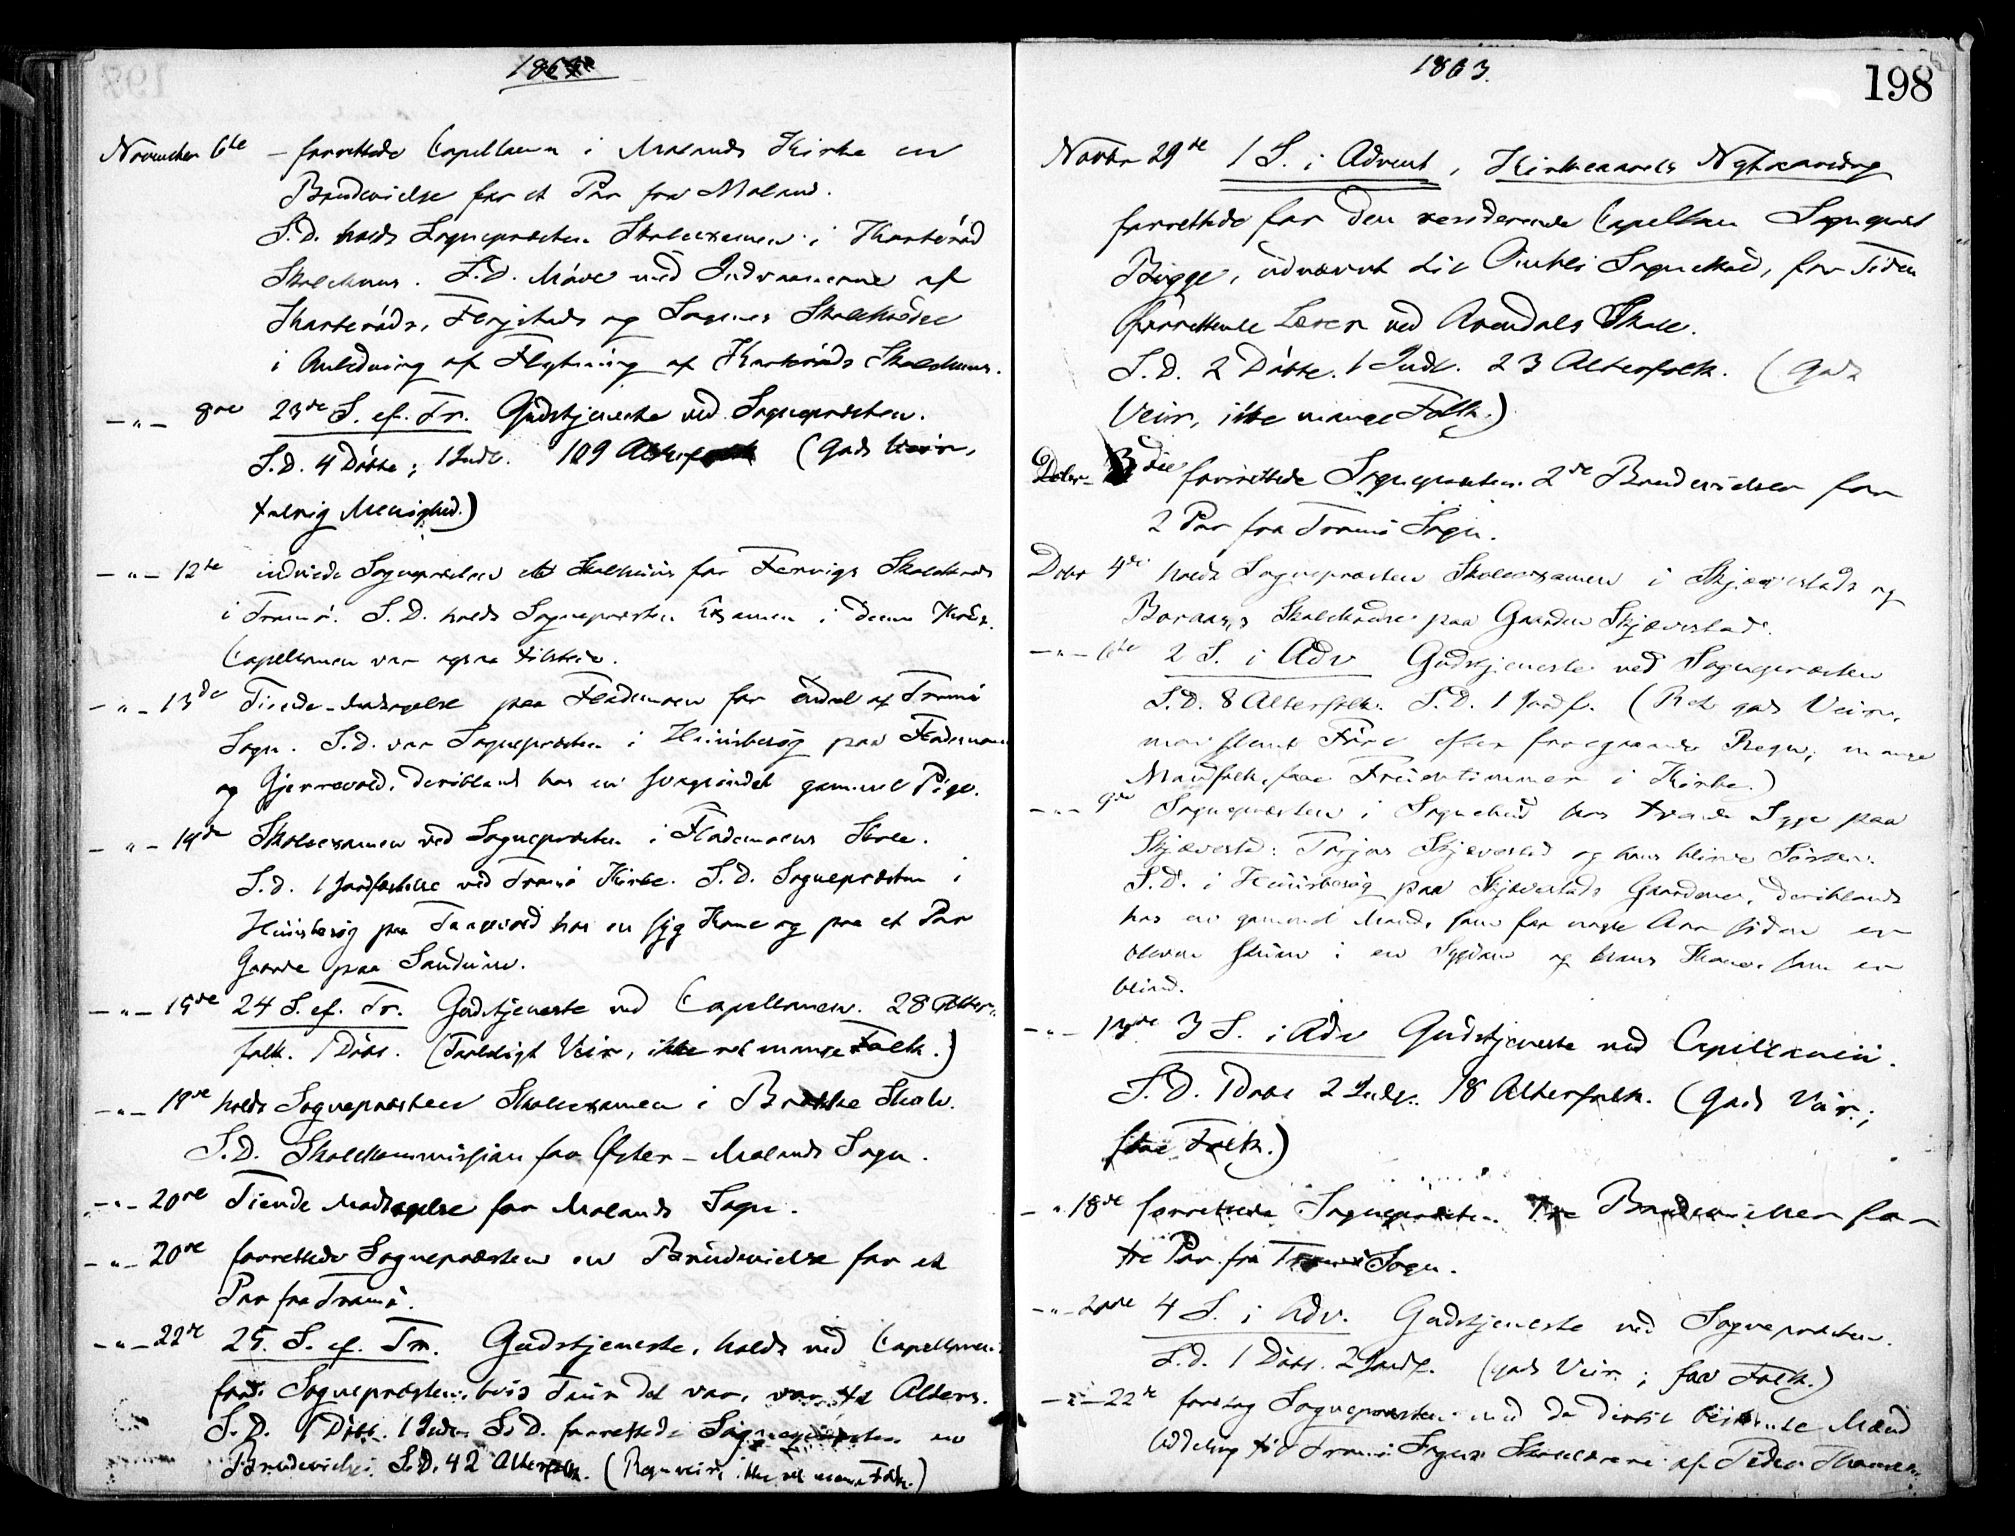 1863
November 6te – forrettede Capellanen i Molands Kirke en
Brudevielse for et Par fra Moland.
S.D. holdt Sognepræsten Skoleexamen i
Skolehuus. S.D. Møde med Indvaanerne af
og Sagenes Skolekredse
i Anledning af Flytning af Skolehuus.
–"– 8de 23de S. ef. Tr. Gudstjeneste ved Sognepræsten.
S.D. 4 Døbte; 1 Indl. 109 Altersfolk (Godt Veir,
talrig Menighed.)
–"– 12te indviede Sognepræsten et Skolehuus for Fervigs Skolekreds
i Tromø. S.D. holdt Sognepræsten Examen i denne Kreds.
Capellanen var ogsaa tilstede.
–"– 13de Tiende-Modtagelse paa Flademoen for endeel af Tromø
Sogn. S.D. var Sognepræsten i Huusbesøg paa Flademoen
og Gjerrevold, deriblandt hos en gammel Pige.
–"– 14de Skoleexamen ved Sognepræsten i Flademoens Skole.
S.D. 1 Jordfæstelse ved Tromø Kirke. S.D. Sognepræsten i
Huusbesøg paa hos en syg Kone og paa et Par
Gaarde paa Sandum.
–"– 15de 24 S. ef. Tr. Gudstjeneste ved Capellanen. 28 Alters-
folk. 1 Døbt. (Taaleligt Veir, ikke ret mange Folk.)
–"– 19de holdt Sognepræsten Skoleexamen i Brække Skole.
S.D. Skolekommission for Øster-Molands Sogn.
–"– 20de Tiende Modtagelse for Molands Sogn.
–"– 20de forrettede Sognepræsten en Brudevielse for et
Par fra Tromø.
–"– 22de 25. S. ef. Tr. Gudstjeneste, holdt ved Capellanen
fordi Sognepræsten, hvis Tuur det var, var til Alters.
S.D. 1 Døbt. 1 Indl. S.D. forrettede Sognepræsten en
Brudevielse. S.D. 42 Altersfolk. (Regnveir, ikke ret mange Folk.)
1863.
198
Novbr 29de 1 S. i Advent, Kirkeaarets Nytaarsdag
forrettede for den residerende Capellan Sognepræst
Bugge, udnævnt til Sognekald, for Tiden
Lærer ved Arendals Skole.
S.D. 2 Døbte. 1 Indl. 23 Altersfolk. (Godt
Veir, ikke mange Folk.)
Debr. 3die forrettede Sognepræsten 2de Brudevielser for
2 Par fra Tromø Sogn.
Debr 4de holdt Sognepræsten Skoleexamen i Skjævestads og
Boraas's Skolekredse paa Gaarden Skjævestad.
–"– 6te 2 S. i Adv Gudstjeneste ved Sognepræsten
S.D. 8 Altersfolk. S.D. 1 Jordf. (Ret godt Veir,
men slemt Føre efter foregaaende Regn; mange
Mandfolk, faae Fruentimmer i Kirke.)
–"– 9de Sognepræsten i Sognebud hos tvende Syge paa
Skjævestad: Torjus Skjævestad og hans blinde Søster.
S.D. i Huusbesøg paa Skjævestads Gaardene, deriblandt
hos en gammel Mand, som for nogle Aar siden er
bleven stum i en Sygdom og hans Kone, som er
blind.
–"– 13de 3 S. i Adv Gudstjeneste ved Capellanen.
S.D. 1 Døbt 2 Indl. 18 Altersfolk. (Godt Veir;
faae Folk.)
–"– 18de forrettede Sognepræsten Tre Brudevielser for
tre Par fra Tromø Sogn.
–"– 20de 4 S. i Adv. Gudstjeneste ved Sognepræsten.
S.D. 1 Døbt. 2 Jordf. (godt Veir; faae Folk.)
–"– 22de foretog Sognepræsten med de dertil bestemte Mænd
Uddeling til Tromø Sogns af